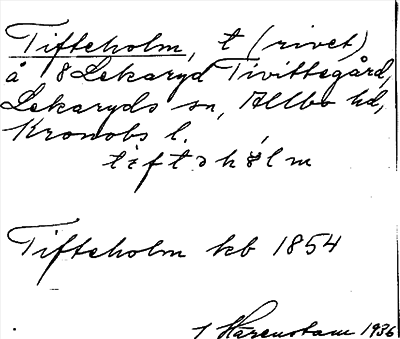 Tifteholm, t (rivet)
å 8 Lekaryd Tivittegård,
Lekaryds sn, Allbo hd,
Kronobs l.
tiftəhɵ́lm
Tifteholm kb 1854
1 Härenstam 1936